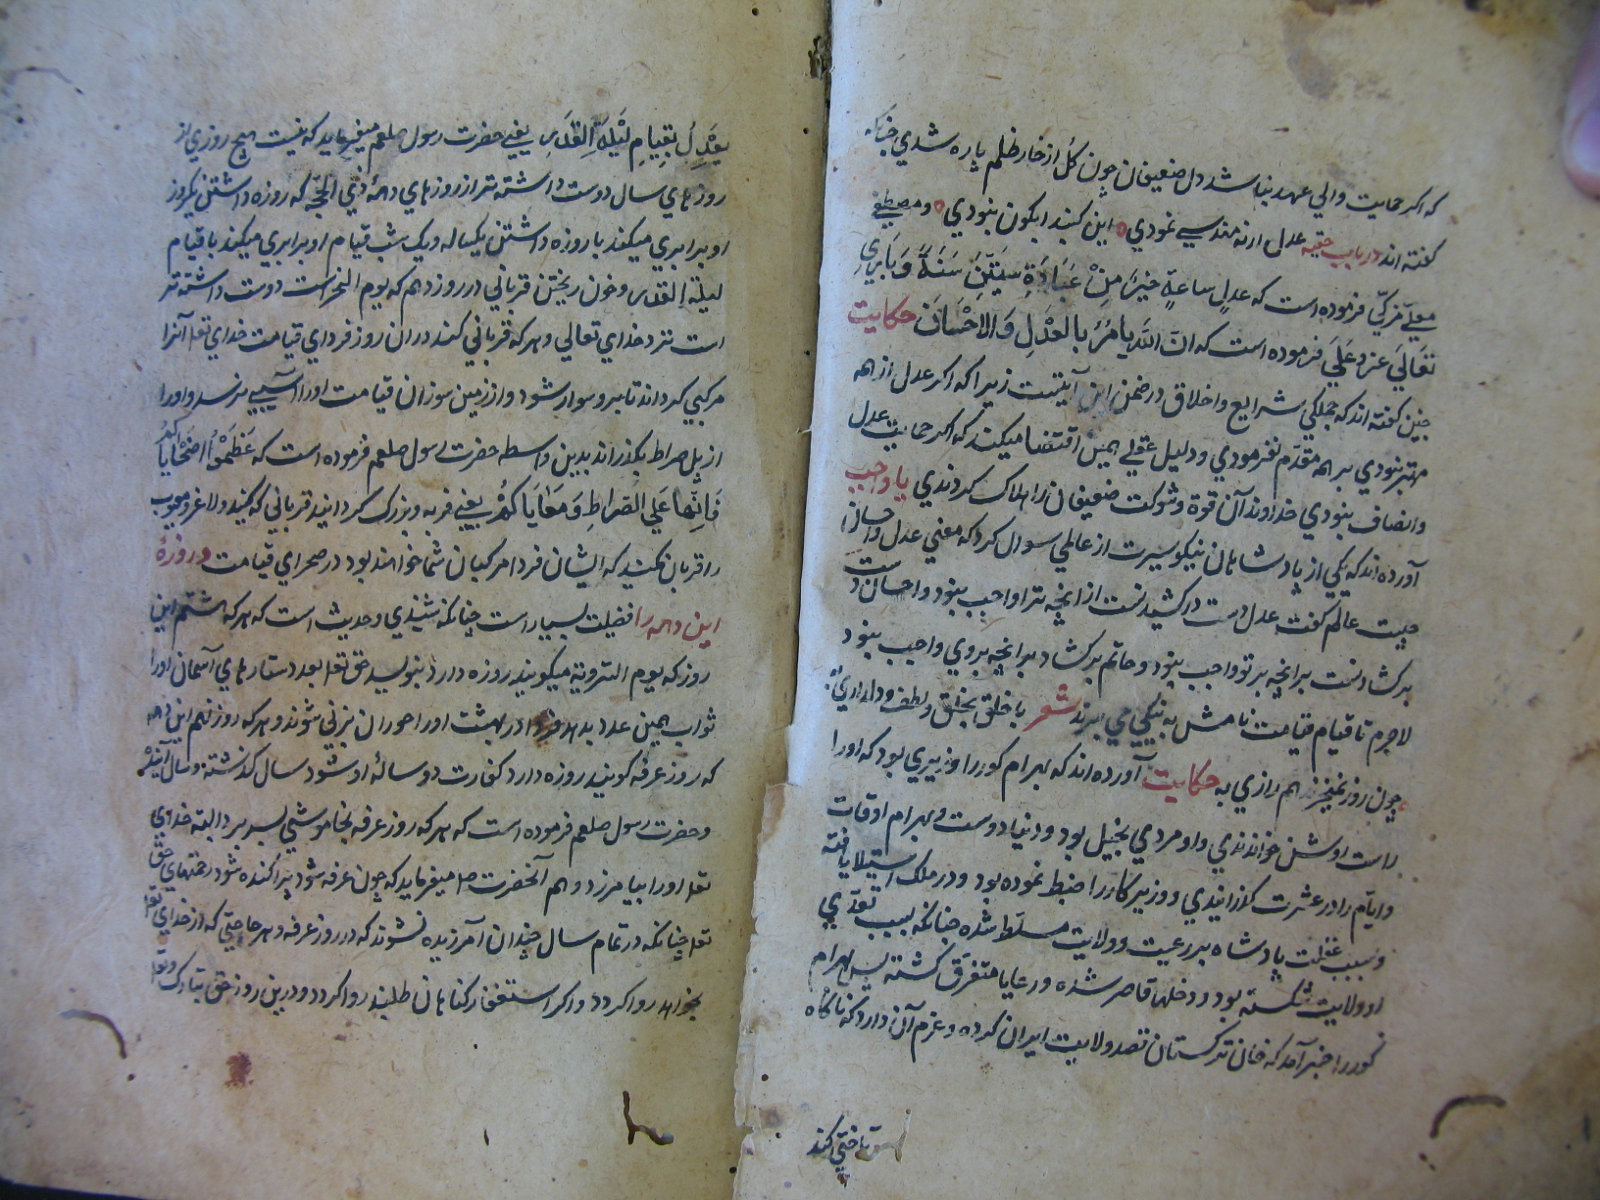 که اگر حمایت والی عهد نباشد دل ضعیفان چون گل از خار ظلم پاره شدی چنانکه
گفته اند در باب حقیقه عدل ار نه مهندسی نمودی این گنبد آبگون نبودی و مصطفی
معلّی مزکّی فرموده است که عدل ساعةٍ خیرٌ مِنْ عِبَادَةِ سِتّینَ سَنَةً وَ باری
تعالی عز و علی فرموده است که ان الله یامر بالعدل و الاحسان حکایت
چنین گفته اند که جملگی شرایع و اخلاق در ضمن این آیتست زیرا که اگر عدل از همه
مهتر نبودی بر همه مقدم نفرمودی و دلیل عقلی همین اقتضا میکند که اگر حمایت عدل
و انصاف نبودی خداوند آن قوة و شوکت ضعیفان را هلاک کردندی یا واجب
آورده اند که یکی از پادشاهان نیکو سیرت از عالمی سوال کرد که معنی عدل و احسان
چیست عالم گفت عدل دست در کشیدنست از آنچه ترا واجب نبود و احسان دست
برگشادنست بر آنچه بر تو واجب نبود و حاتم برگشاد بر آنچه بر وی واجب نبود
لاجرم تا قیام قیامت نامش به نیکی می برند شعر با خلق بخلق و لطف و دلداری به
چون روز نمیخرند هم رازی به حکایت آورده اند که بهرام گور را وزیری بود که او را
راست روشن خواندندی و او مردی بخیل بود و دنیا دوست و بهرام اوقات
و ایام را در عشرت گذرانیدی و وزیر کار را ضبط نموده بود و در ملک استیلا یافته
و بسبب غفلت پادشاه بر رعیت و ولایت مسلط شده چنانکه بسبب تعدی
او ولایت شکسته بود و دخلها قاصر شده و رعایا متفرق گشته پس بهرام
گور را خبر آمد که خان ترکستان قصد ولایت ایران کرده و عزم آن دارد که ناگاه
تاختی کند
یَعْدِلُ بقِیامِ لَیْلَةِ القَدْرِ یعنی حضرت رسول صلعم میفرماید که نیست هیچ روزی از
روزهای سال دوست داشته تر از روزهای دهۀ ذی الحجه که روزه داشتن یکروز
او برابری میکند با روزه داشتن یکساله و یک شب قیام او برابری میکند با قیام
لیلة القدر و خون ریختن قربانی در روز دهم که یوم النحر است دوست داشته تر
است نزد خدای تعالی و هر که قربانی کند در ان روز فردای قیامت خدای تعا آنرا
مرکبی گرداند تا برو سوار شود و از زمین سوزان قیامت او را آسیبی نرسد و او را
از پل صراط بگذراند بدین واسطه حضرت رسول صلعم فرموده است که عَظِّمُوا ضَحَایَاکُم
فَاِنَّها عَلَی الصّراطِ مَطَایَاکُمْ یعنی فربه و بزرگ گردانید قربانی که کنید و لاغر و معیوب
را قربان نکنید که ایشان فردا مرکبان شما خواهند بود در صحرای قیامت و روزۀ
این دهه را فضیلت بسیار است چنانکه شنیدی و حدیث است که هر که هشتم این
روز که یوم الترویة میگویند روزه دارد بنویسد حق تعا بعدد ستارهای آسمان او را
ثواب بهمین عدد بدهد در بهشت او را حوران بزنی شوند و هر که روز نهم این دهه
که روز عرفه گویند روزه دارد کفارت دو سالۀ او شود سال گذشته و سال آینده
و حضرت رسول صلعم فرموده است که هر که روز عرفه بخاموشی بسر برد البته خدای
تعا او را بیامرزد و هم آنحضرت صلعم میفرماید که چون عرفه شود پراکنده شود رحمتهای حق
تعا چنانکه در تمام سال چندان آمرزیده نشوند که در روز عرفه و هر حاجتی که از خدای تعا
بخواهد روا گردد و اگر استغفار گناهان طلبند روا گردد و درین روز حق تبارک و تعا